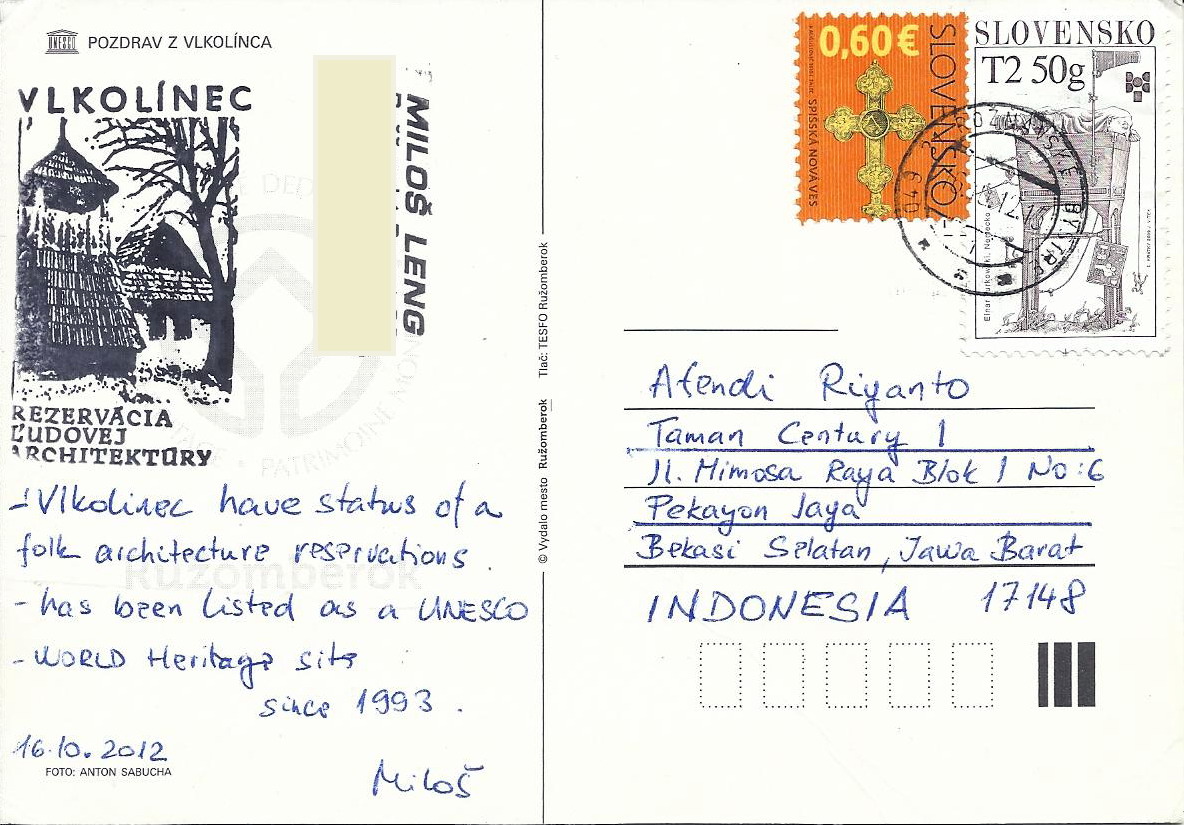 UNESCO
POZDRAV Z VLKOLÍNCA
VLKOLÍNEC
REZERVÁCIA
ĽUDOVEJ
ARCHITEKTÚRY
MILOŠ LENG
PATRIMOINE
Ružomberok
- Vlkolinec have status of a
folk architecture reservations
- has been listed as a UNESCO
- WORLD Heritage site
since 1993.
16.10.2012
FOTO: ANTON SABUCHA
Miloš
© Vydalo mesto Ružomberok Tlač: TESFO Ružomberok
0,60 €
SLOVENSKO
SPIŠSKÁ NOVÁ VES
SLOVENSKO
T2 50g
Nemecko
Afendi Riyanto
Taman Century 1
Jl. Mimosa Raya Blok 1 No:6
Pekayon Jaya
Bekasi Selatan, Jawa Barat
INDONESIA 17148